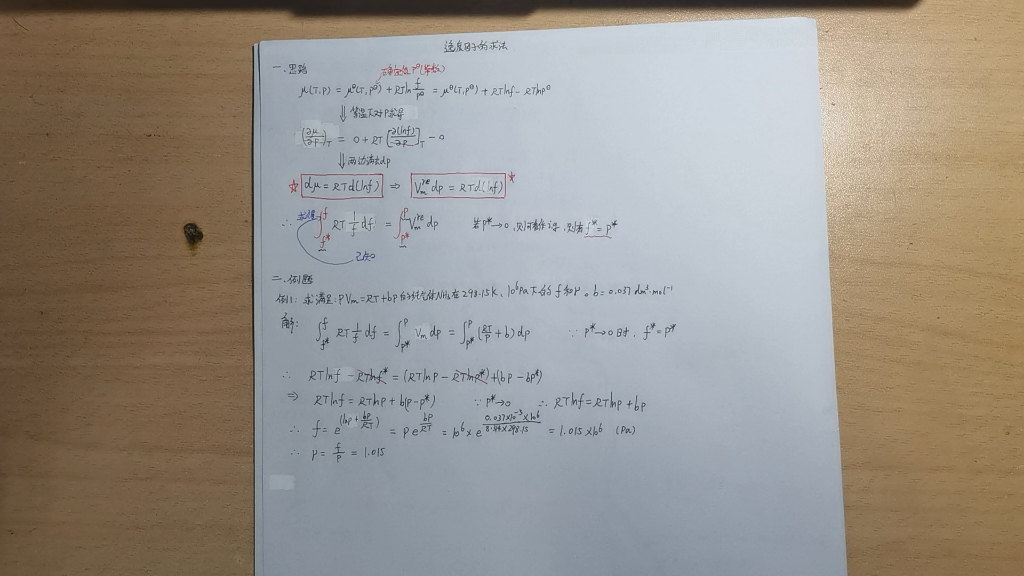 逸度因子的求法
一、思路
确定值 P⁰(常数)
μ(T,P) = μ⁰(T,P⁰) + RTln f/P⁰ = μ⁰(T,P⁰) + RTlnf - RTlnP⁰
⇓ 等温下对P求导
(∂μ/∂P)T = 0 + RT[∂(lnf)/∂P]T - 0
⇓ 两边乘dp
☆ dμ = RTd(lnf) ⇒ Vm^re dp = RTd(lnf) ☆
∴ ∫f*^f RT 1/f df = ∫P*^P Vm^re dp 若P*→0, 则有 f* = P*
二、例题
例1: 求满足: PVm=RT+bP 的纯气体NH₃在298.15K, 10⁶Pa下的 f 和 r 。b = 0.037 dm³·mol⁻¹
解: ∫f*^f RT 1/f df = ∫P*^P Vm dp = ∫P*^P (RT/P + b) dp ∵ P*→0 时, f* = P*
∴ RTlnf - RTlnf* = (RTlnP - RTlnP*) + (bP - bP*)
⇒ RTlnf = RTlnP + b(P-P*) ∵ P*→0 ∴ RTlnf = RTlnP + bP
∴ f = e^(lnP + bP/RT) = P e^(bP/RT) = 10⁶ × e^(0.037×10⁻³×10⁶/8.314×298.15) = 1.015 ×10⁶ (Pa)
∴ r = f/P = 1.015